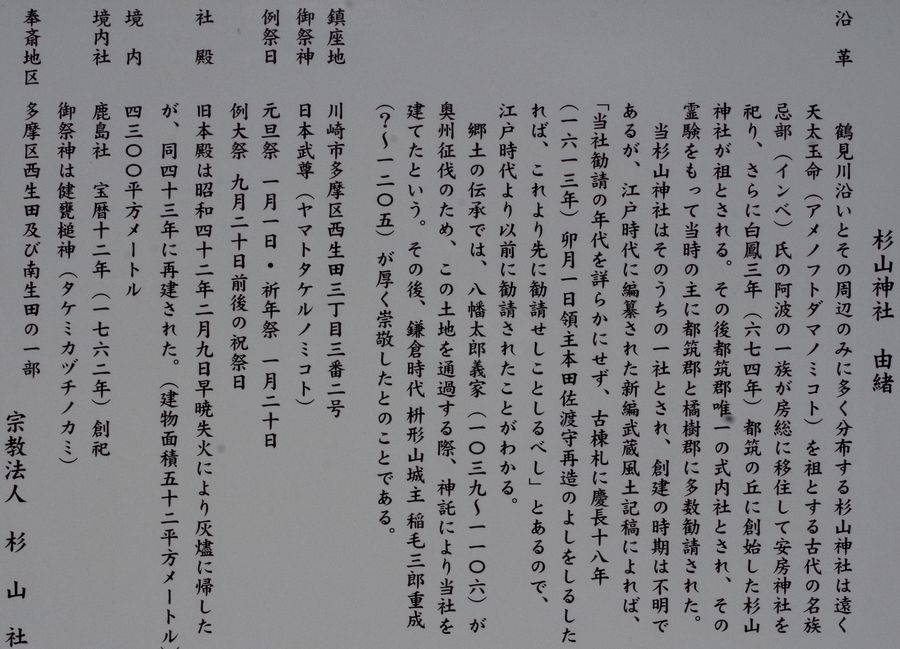 杉山神社　由緒
沿　革　　鶴見川沿いとその周辺のみに多く分布する杉山神社は遠く
天太玉命（アメノフトダマノミコト）を祖とする古代の名族
忌部（インベ）氏の阿波の一族が房総に移住して安房神社を
祀り、さらに白鳳三年（六七四年）都筑の丘に創始した杉山
神社が祖とされる。その後都筑郡唯一の式内社とされ、その
霊験をもって当時の主に都筑郡と橘樹郡に多数勧請された。
　当杉山神社はそのうちの一社とされ、創建の時期は不明で
あるが、江戸時代に編纂された新編武蔵風土記稿によれば、
「当社勧請の年代を詳らかにせず、古棟札に慶長十八年
（一六一三年）卯月一日領主本田佐渡守再造のよしをしるした
れば、これより先に勧請せしことしるべし」とあるので、
江戸時代より以前に勧請されたことがわかる。
　郷土の伝承では、八幡太郎義家（一〇三九～一一〇六）が
奥州征伐のため、この土地を通過する際、神託により当社を
建てたという。その後、鎌倉時代 枡形山城主 稲毛三郎重成
（？～一二〇五）が厚く崇敬したとのことである。
鎮座地　川崎市多摩区西生田三丁目三番二号
御祭神　日本武尊（ヤマトタケルノミコト）
例祭日　元旦祭　一月一日・祈年祭　一月二十日
例大祭　九月二十日前後の祝祭日
社　殿　旧本殿は昭和四十二年二月九日早暁失火により灰燼に帰した
が、同四十三年に再建された。（建物面積五十二平方メートル）
境　内　四三〇〇平方メートル
境内社　鹿島社　宝暦十二年（一七六二年）創祀
御祭神は健甕槌神（タケミカヅチノカミ）
奉斎地区　多摩区西生田及び南生田の一部
宗教法人　杉　山　社